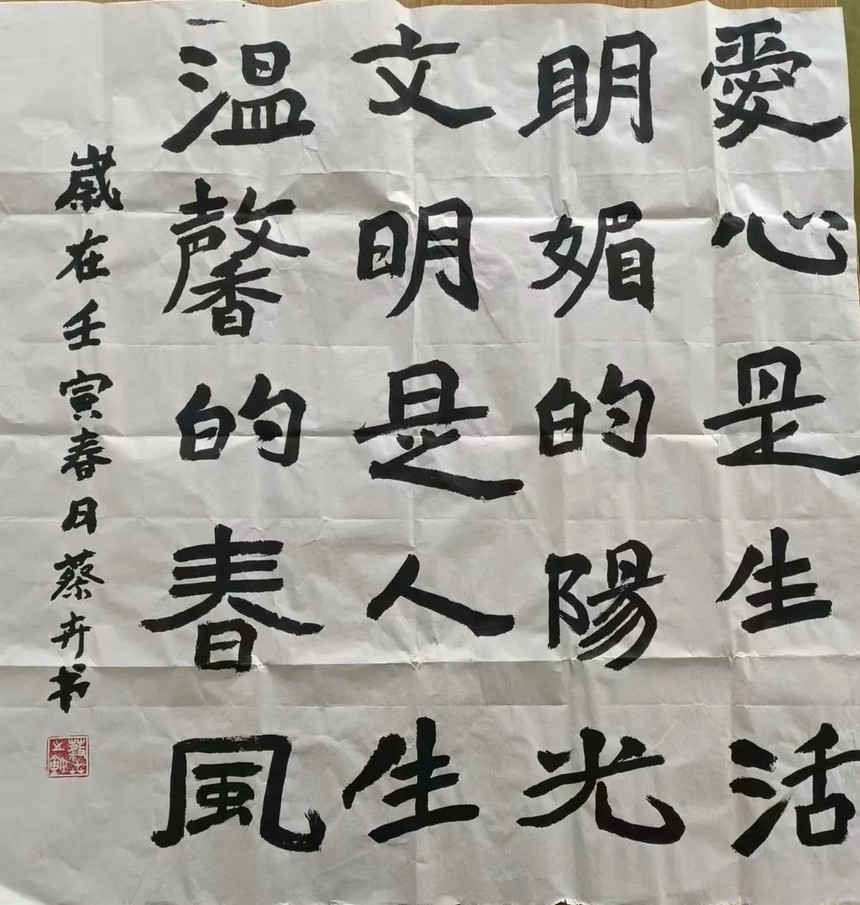 愛心是生活
明媚的陽光
文明是人生
温馨的春風
歲在壬寅春日蔡卉书